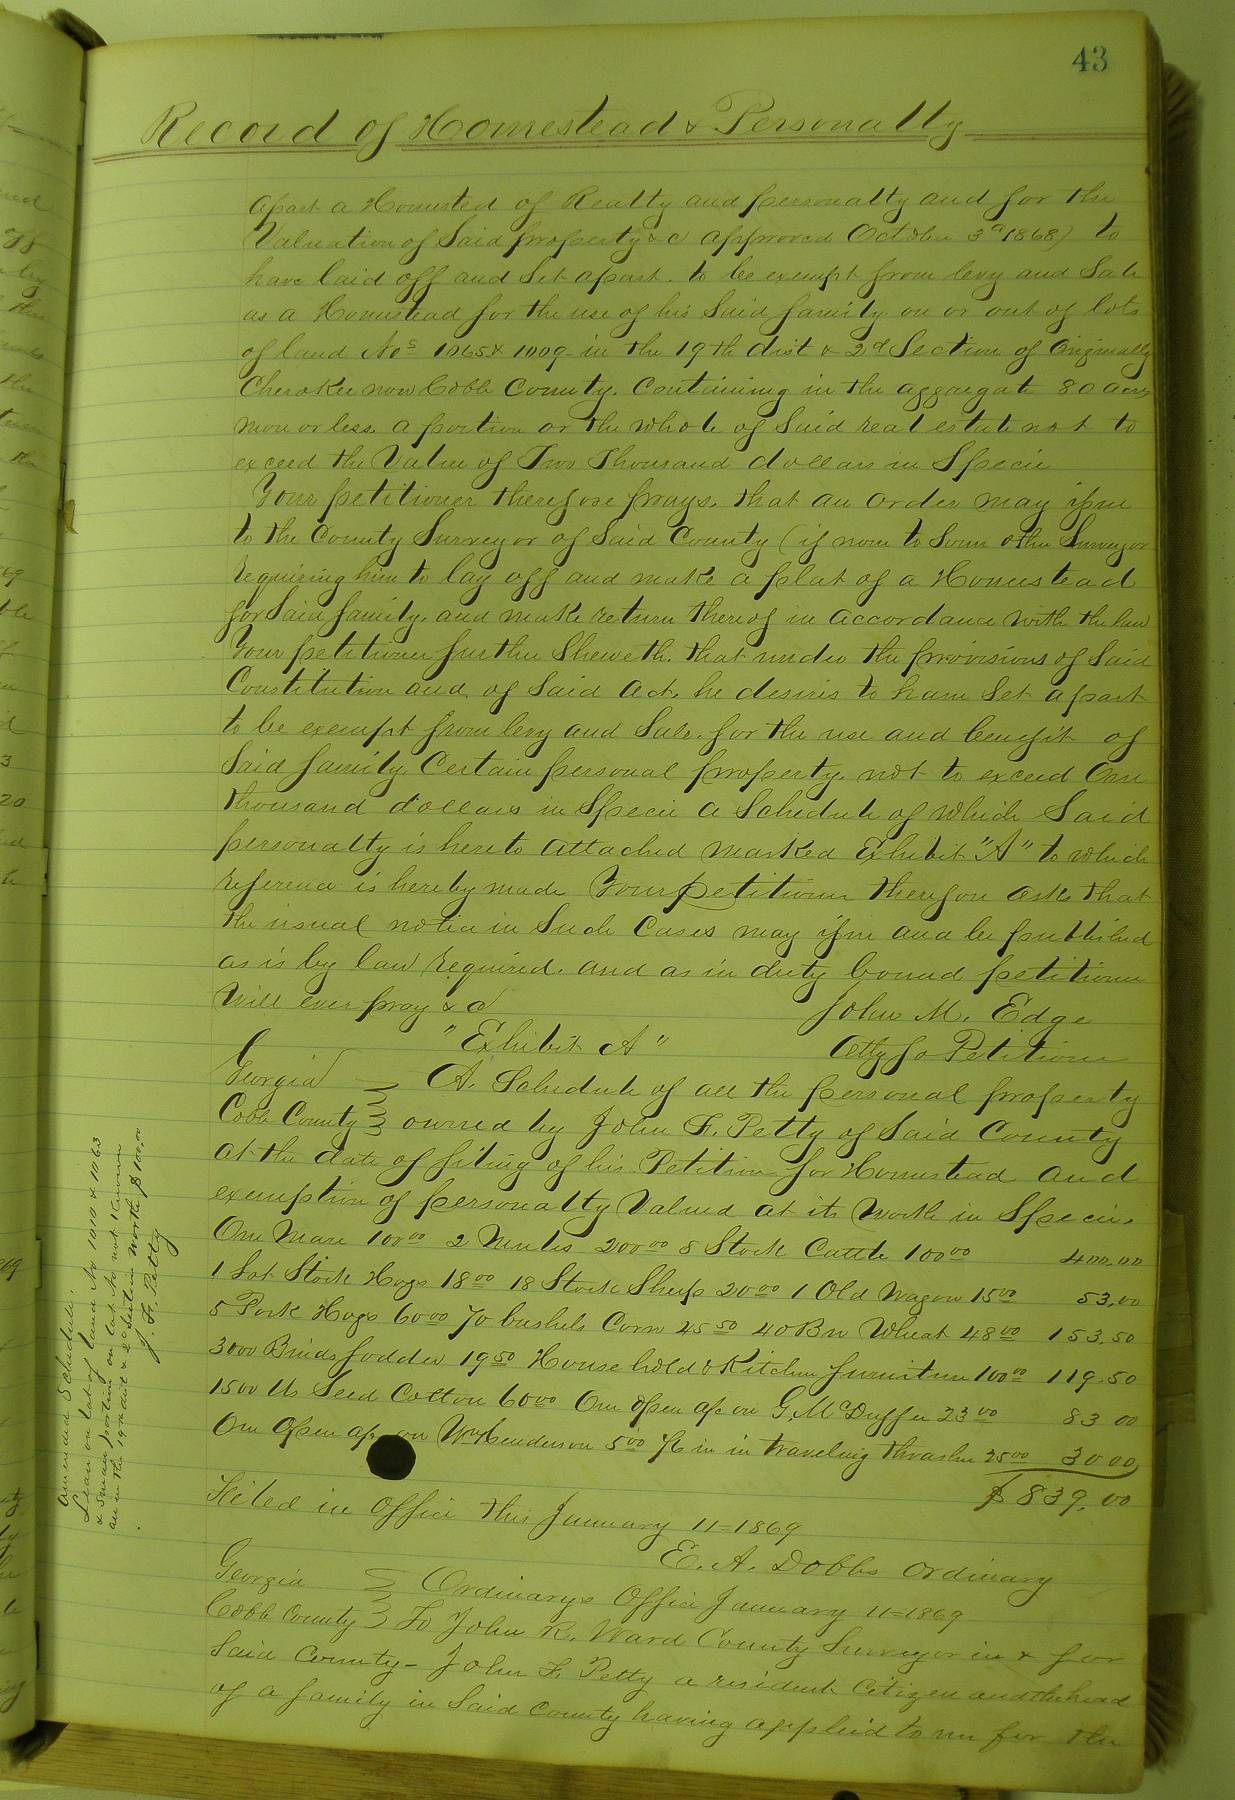 43
Record of Homestead & Personalty
apart a Homested of Realty and personalty and for the
Valuation of Said property & c approved October 3d 1868) to
have laid off and Set apart. to be exempt from levy and Sale
as a Homestead for the use of his Said family on or out of lots
of land Nos 1065 & 1009 in the 19th dist & 2d Section of Originally
Cherokee now Cobb County. Containing in the aggregate 80 acres
more or less. a portion or the whole of Said real estate not to
exceed the Value of Two Thousand dollars in Specie
Your petitioner therefore prays. that an order may issue
to the County Surveyor of Said County (if none to Some other Surveyor
requiring him to lay off and make a plat of a Homestead
for Said family. and make return thereof in accordance with the law
Your petitioner further Sheweth. that under the provisions of Said
Constitution and of Said Act. he desires to have Set apart
to be exempt from levy and Sale. for the use and benefit of
Said family. Certain personal property. not to exceed One
thousand dollars in Specie a Schedule of which Said
personalty is hereto attached marked Exhibit "A" to which
reference is hereby made Your petitioner therefore asks that
the usual notice in Such Cases may issue and be published
as is by law required. and as in duty bound petitioner
Will ever pray & c
John M. Edge
"Exhibit A"
Atty for Petitioner
Georgia
A. Schedule of all the personal property
Cobb County owned by John F. Petty of Said County
at the date of filing of his Petition for Homestead and
exemption of personalty Valued at its Worth in Specie.
One Mare 100 00 2 Mules 200 00 8 Stock Cattle 100 00 400.00
1 Lot Stock Hogs 18 00 18 Stock Sheep 20 00 1 Old Wagon 15 00 53.00
5 Pork Hogs 60 00 70 bushels Corn 45 50 40 Bu Wheat 48 00 153.50
3000 Binds fodder 19 50 House hold & Kitchen furniture 100 00 119.50
1500 lbs Seed Cotton 60 00 One open a/c on G. McDuffee 23 00 83 00
One Open a/c on Wm Henderson 5 00 in in traveling thrasher 25 00 30 00
$839.00
Filed in Office this January 11=1869
E. A. Dobbs Ordinary
Georgia
Ordinarys Office January 11=1869
Cobb County To John R. Ward County Surveyor in & for
Said County - John F. Petty a resident Citizen and the head
of a family in Said County having applied to me for the
Amended Schedule.
Lean on lot of land No 1010 & 1063
& Small portion on lot No not Known
all in the 19th dist & 2d Section worth $100,00
J. F. Petty